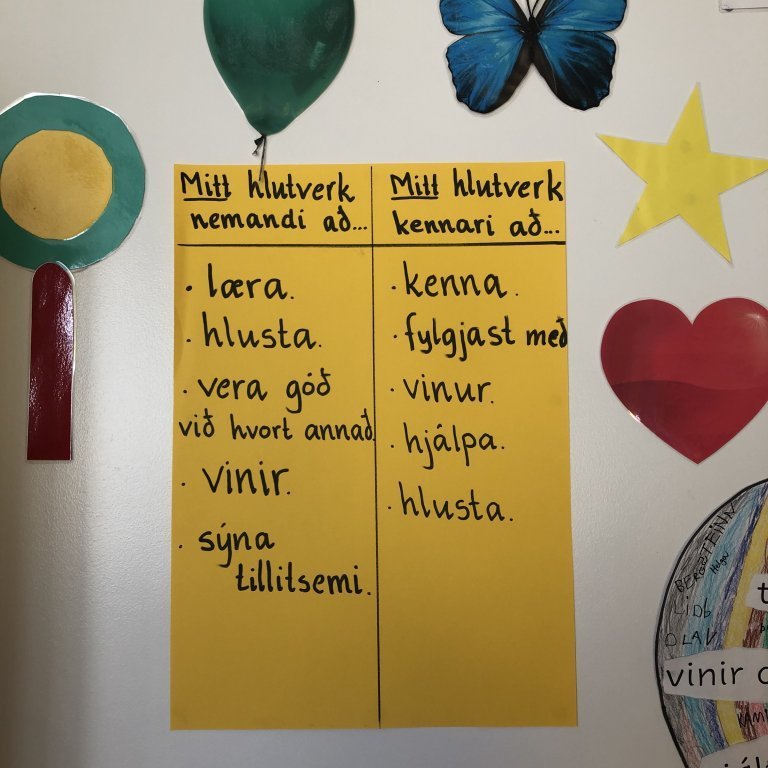 Mitt hlutverk
nemandi að...
· læra.
· hlusta.
· vera góð
við hvort annað
· vinir.
· sýna
tillitsemi.
Mitt hlutverk
kennari að...
· kenna.
· fylgjast með
· vinur.
· hjálpa.
· hlusta.
BERGSTEINN
Helga
OLAV
vinir